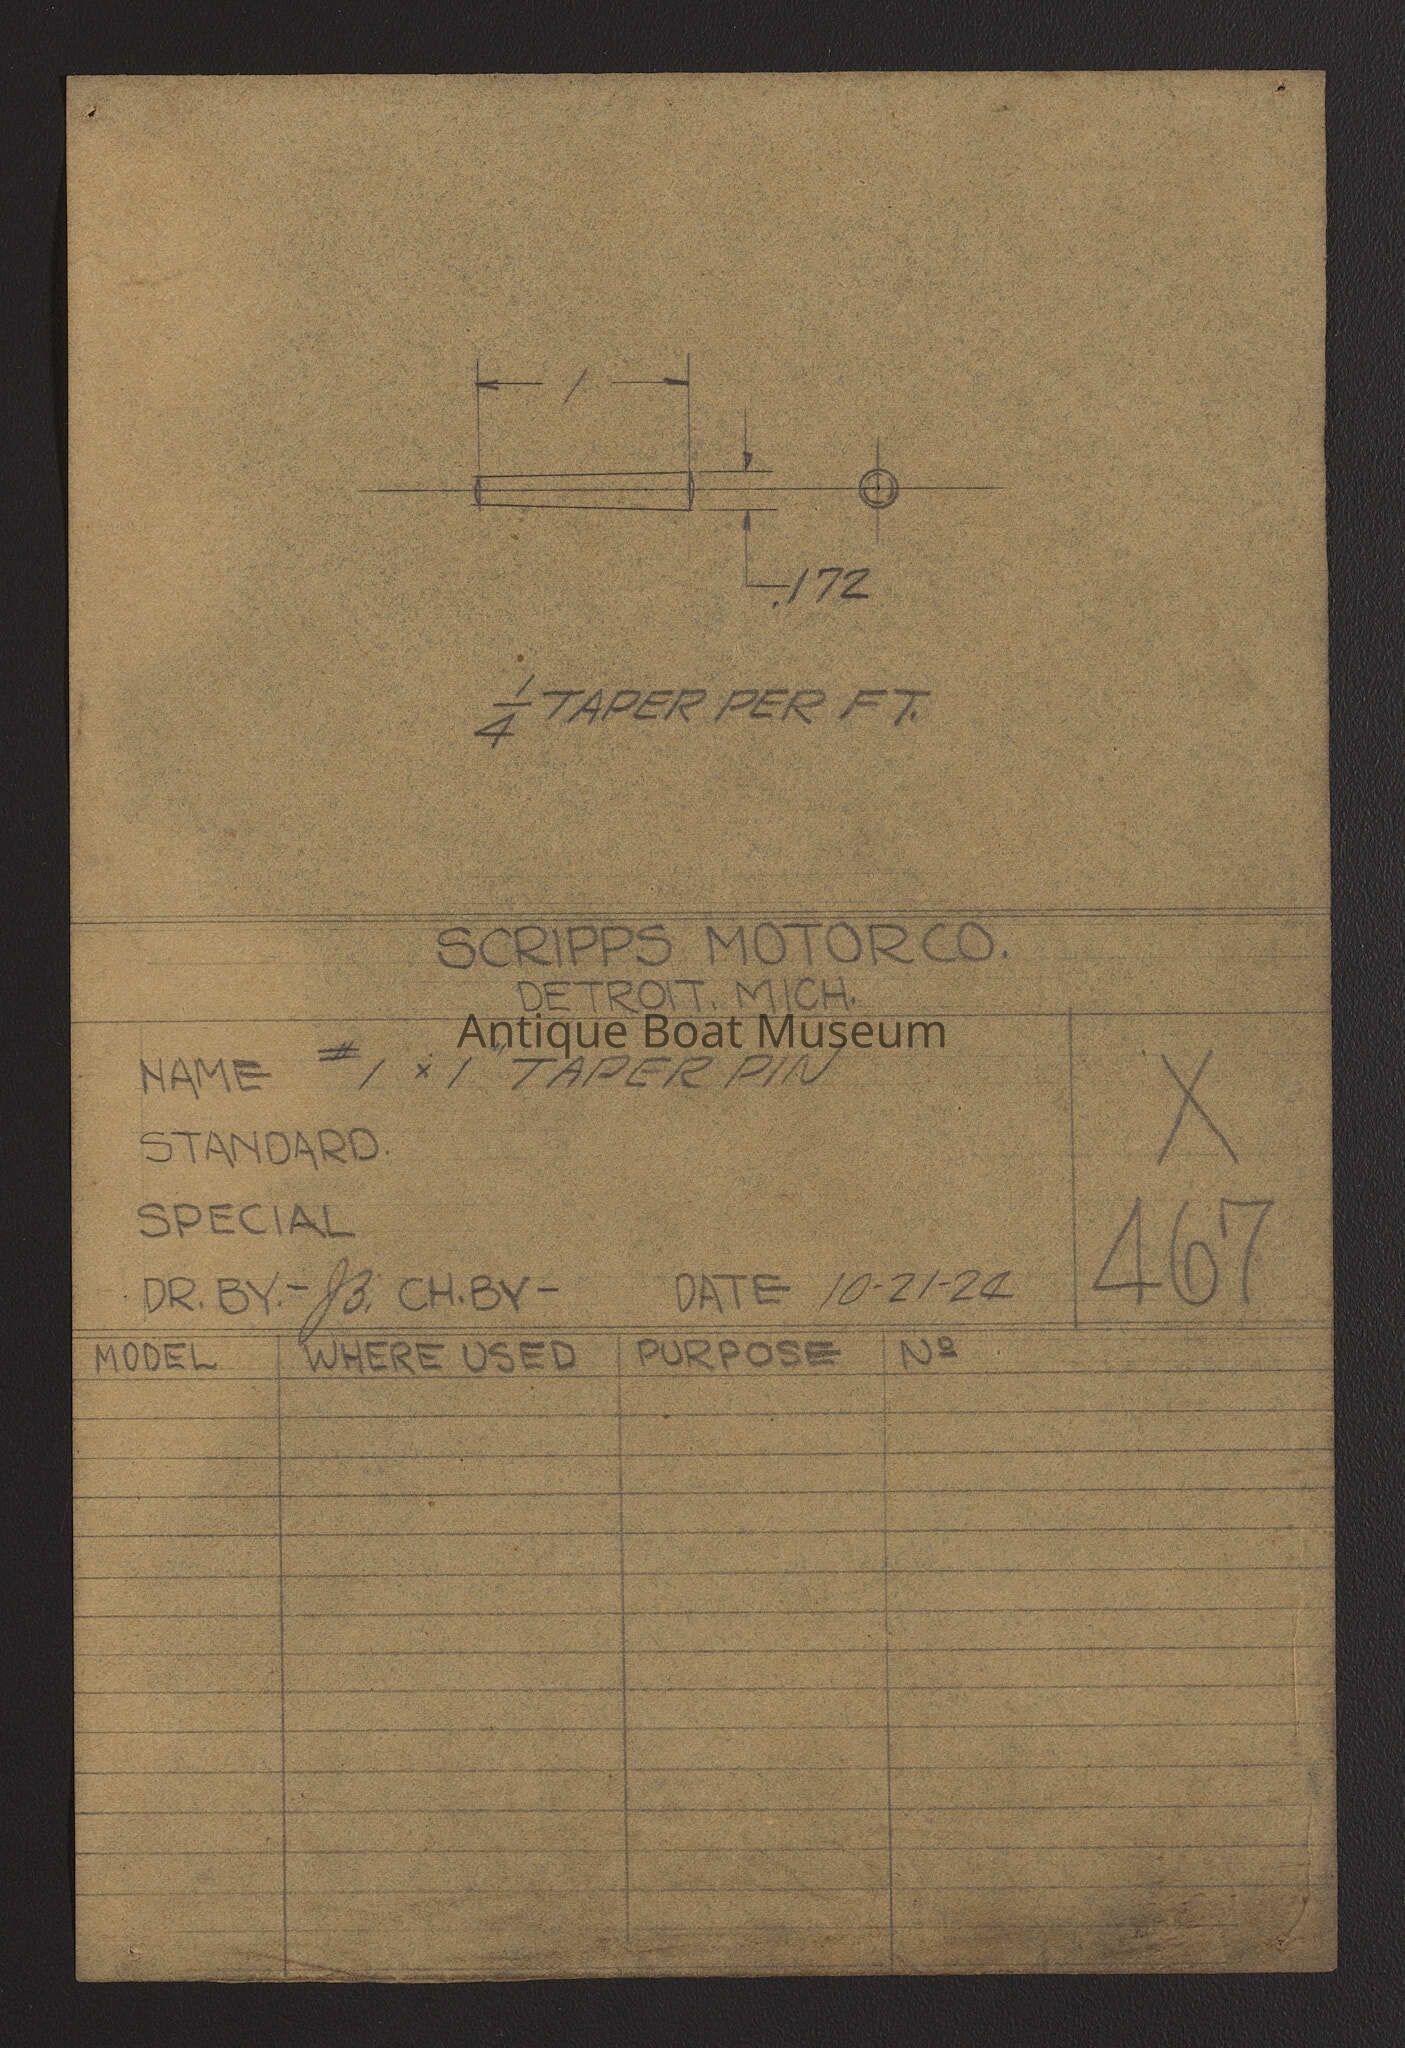 1
.172
1/4 TAPER PER FT.
SCRIPPS MOTOR CO.
DETROIT. MICH.
Antique Boat Museum
NAME #1 x 1" TAPER PIN
X
STANDARD.
SPECIAL
467
DR. BY.- JB. CH. BY- DATE 10-21-24
MODEL WHERE USED PURPOSE Nº